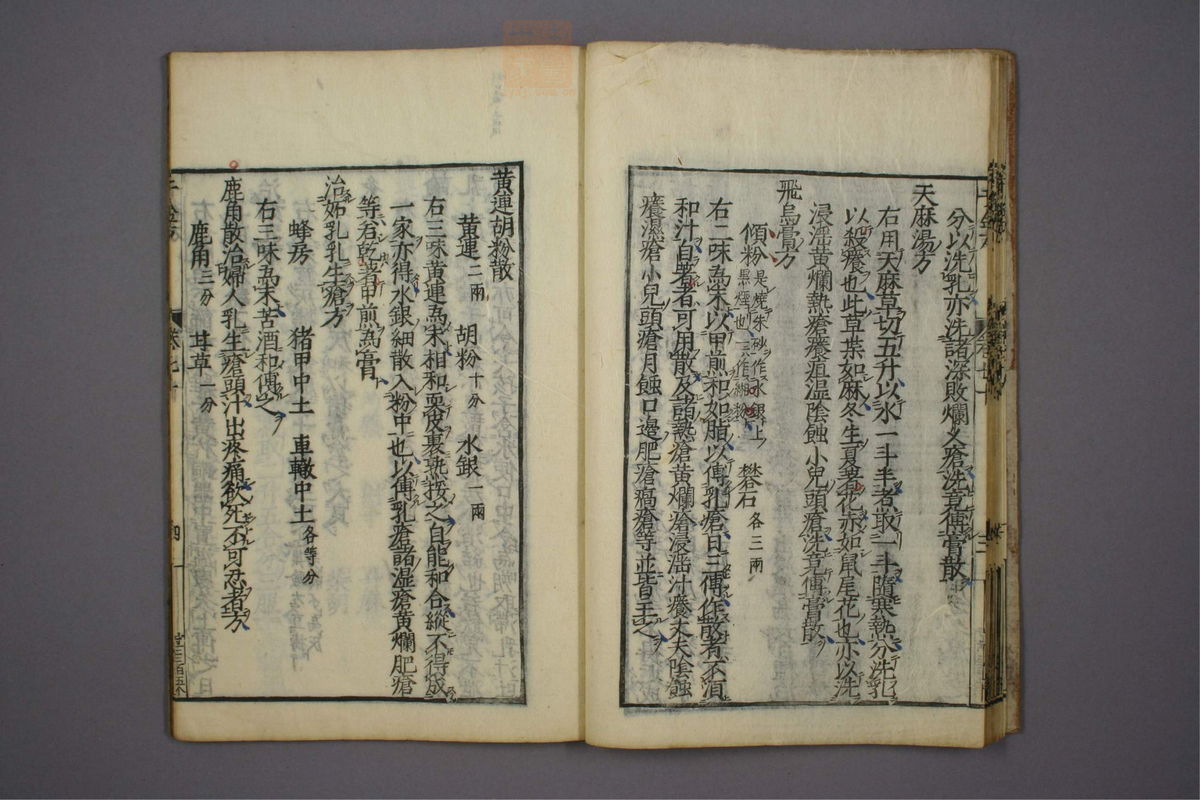 分以洗乳亦洗諸深敗爛久瘡洗竟傅膏散
天麻湯方
右用天麻草切五升以水一斗半煮取一斗隨寒熱分洗乳
以殺癢也此草葉如麻冬生夏著花赤如鼠尾花也亦以洗
浸淫黄爛熱瘡癢疽温陰蝕小兒頭瘡洗竟傅膏散
飛烏膏方
傾粉 是燒朱砂作水銀上黑煙也一作湘粉 礬石 各三兩
右二味為末以甲煎和如脂以傅乳瘡日三傅作散者不須
和汁自著者可用散及諸熱瘡黄爛瘡浸淫汁癢丈夫陰蝕
癢濕瘡小兒頭瘡月蝕口邊肥瘡瘑瘡等並皆主之
黄連胡粉散
黄連 二兩 胡粉 十分 水銀 一兩
右三味黄連為末相和皮裹熟挼之自能和合縱不得成
一家亦得水銀細散入粉中也以傅乳瘡諸湿瘡黄爛肥瘡
等若乾著甲煎為膏
治妬乳乳生瘡方
蜂房 猪甲中土 車轍中土 各等分
右三味為末苦酒和傅之
鹿角散治婦人乳生瘡頭汁出疼痛欲死不可忍者方
鹿角 三分 甘草 一分
卷七
四